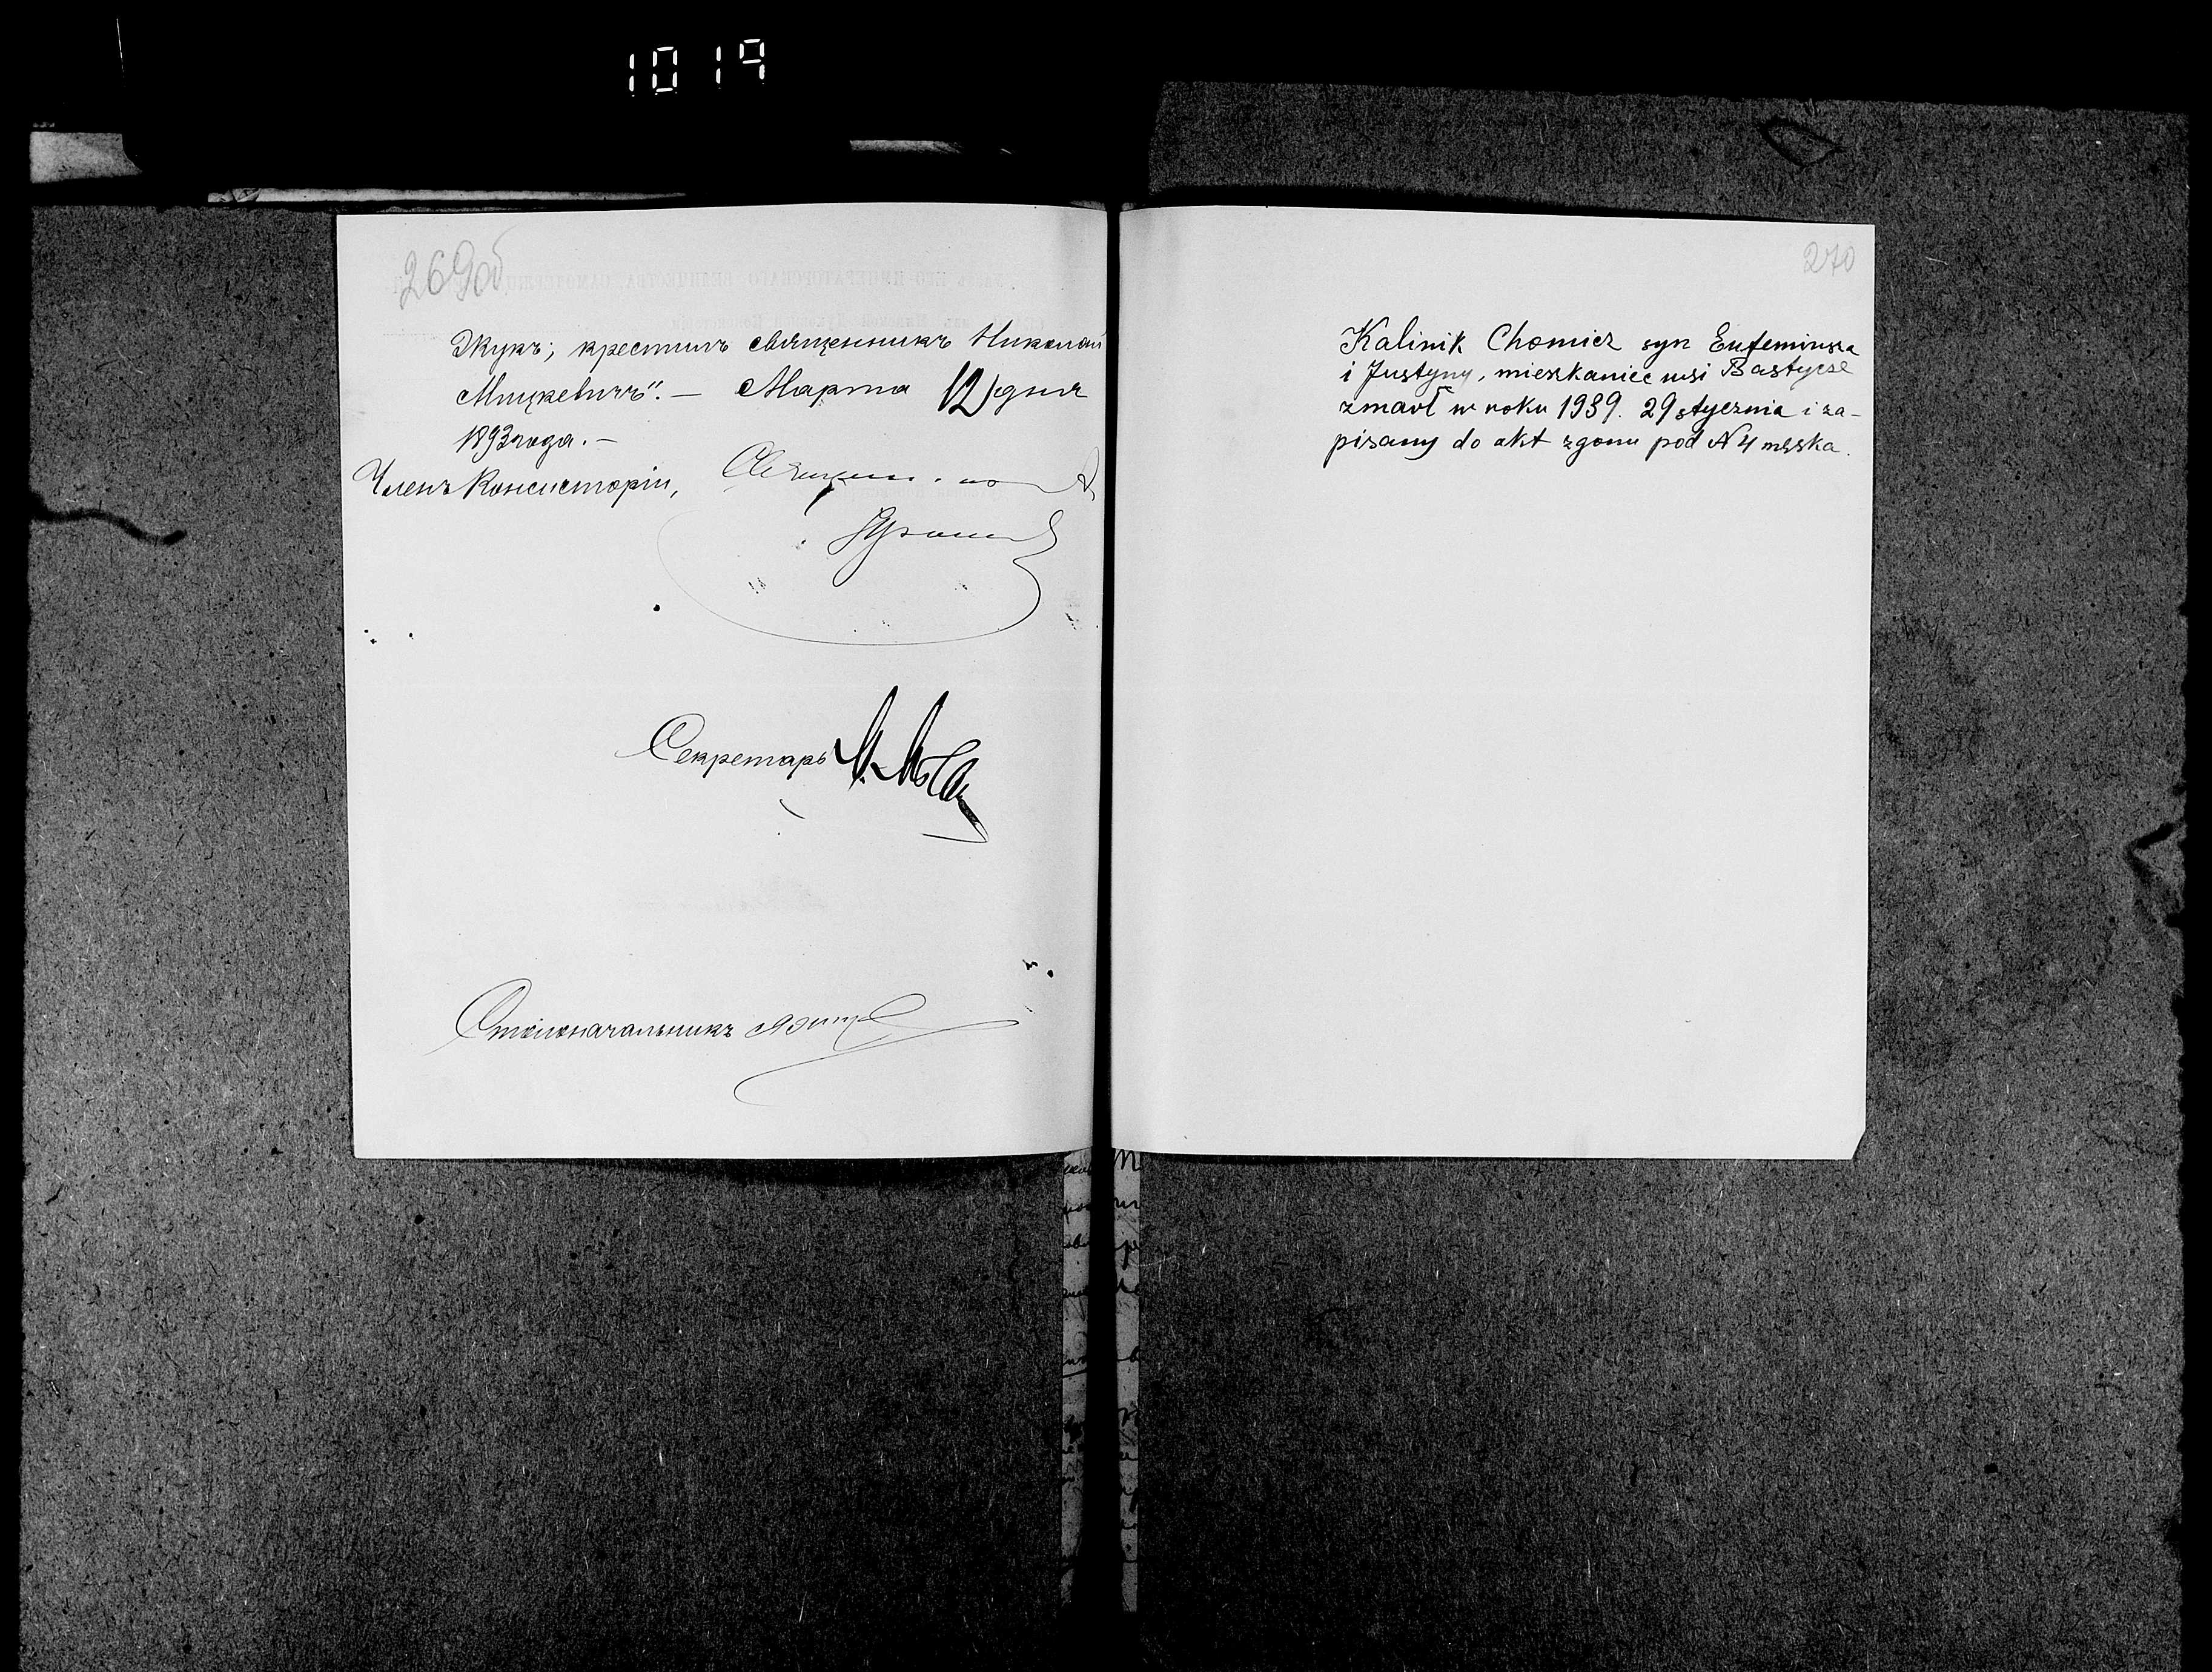 1019
269об
Жукъ; крестилъ священникъ Николай
Мицкевичъ". — Марта 12 дня
1893 года. —
Членъ Консисторіи,
Секретарь
Столоначальникъ
270
Kalinik Chomicz syn Eufemiusza
i Justyny, mieszkaniec wsi Bastycze
zmarł w roku 1939. 29 stycznia i za-
pisany do akt zgonu pod N 4 męska.